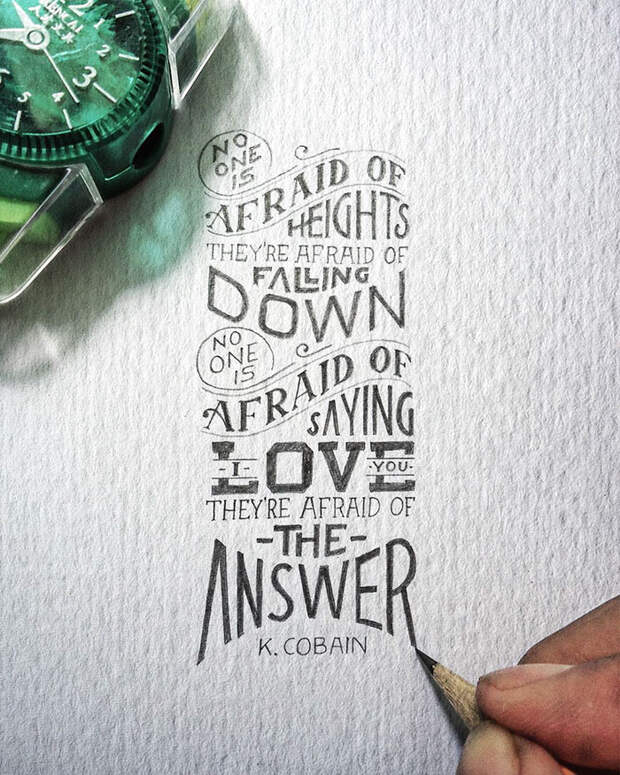 NO
ONE
IS
AFRAID OF
HEIGHTS
THEY'RE AFRAID OF
FALLING
DOWN
NO
ONE
IS
AFRAID OF
SAYING
-I- LOVE ·YOU·
THEY'RE AFRAID OF
-THE-
ANSWER
K. COBAIN
1
2
3
4
5